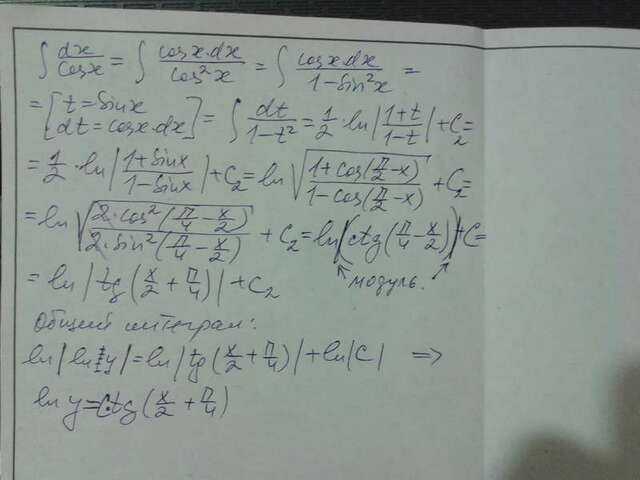 ∫ dx/cosx = ∫ cosx·dx/cos²x = ∫ cosx·dx/1-sin²x =
= [t=sinx dt=cosx·dx] = ∫ dt/1-t² = 1/2·ln|1+t/1-t|+C₂=
= 1/2·ln|1+sinx/1-sinx|+C₂=ln√(1+cos(π/2-x)/1-cos(π/2-x)) +C₂=
= ln√(2·cos²(π/4-x/2)/2·sin²(π/4-x/2)) +C₂=ln|ctg(π/4-x/2)|+C=
модуль.
= ln|tg(x/2+π/4)|+C₂
Общий интеграл:
ln|ln y|=ln|tg(x/2+π/4)|+ln|C| =>
ln y=C·tg(x/2+π/4)